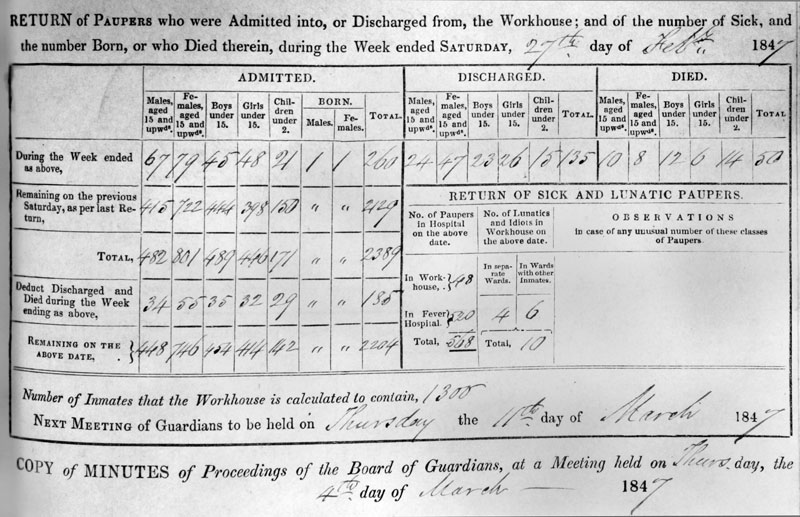 RETURN of PAUPERS who were Admitted into, or Discharged from, the Workhouse; and of the number of Sick, and
the number Born, or who Died therein, during the Week ended SATURDAY, 27th day of Feby 1847
ADMITTED. DISCHARGED. DIED.
Males, aged 15 and upwds. Females, aged 15 and upwds. Boys under 15. Girls under 15. Children under 2. BORN. Males. Females. TOTAL. Males, aged 15 and upwds. Females, aged 15 and upwds. Boys under 15. Girls under 15. Children under 2. TOTAL. Males, aged 15 and upwds. Females, aged 15 and upwds. Boys under 15. Girls under 15. Children under 2. TOTAL
During the Week ended as above, 67 79 45 48 21 1 1 260 24 47 23 26 15 135 10 8 12 6 14 50
Remaining on the previous Saturday, as per last Return, 415 722 444 398 150 „ „ 2129
TOTAL, 482 801 489 446 171 „ „ 2389
Deduct Discharged and Died during the Week ending as above, 34 55 35 32 29 „ „ 185
REMAINING ON THE ABOVE DATE, 448 746 454 414 142 „ „ 2204
RETURN OF SICK AND LUNATIC PAUPERS.
No. of Paupers in Hospital on the above date. No. of Lunatics and Idiots in Workhouse on the above date. OBSERVATIONS in case of any unusual number of these classes of Paupers.
In Workhouse, 48 In separate Wards. In Wards with other Inmates.
In Fever Hospital. 520 4 6
Total, 568 Total, 10
Number of Inmates that the Workhouse is calculated to contain, 1300
NEXT MEETING of Guardians to be held on Thursday the 11th day of March 1847
COPY of MINUTES of Proceedings of the Board of Guardians, at a Meeting held on Thurs.day, the
4th day of March 1847